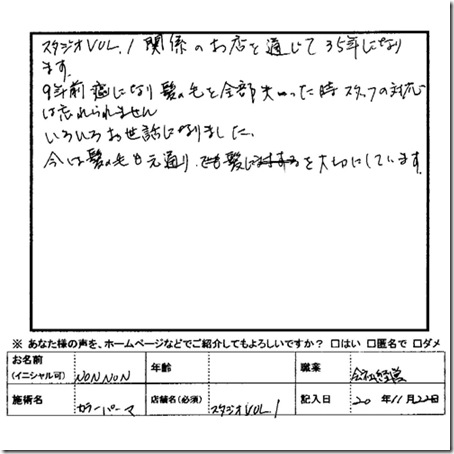 スタジオVUL.1関係のお店を通じて35年になり
ます。
9年前癌になり髪の毛を全部失った時スタッフの対応
は忘れられません
いろいろお世話になりました。
今は髪の毛も元通り、でも髪にを大切にしています。
※ あなた様の声を、ホームページなどでご紹介してもよろしいですか? □はい □匿名で □ダメ
お名前 (イニシャル可) NONNON 年齢 職業 会社経営
施術名 カラーパーマ 店舗名(必須) スタジオVUL.1 記入日 20年11月22日